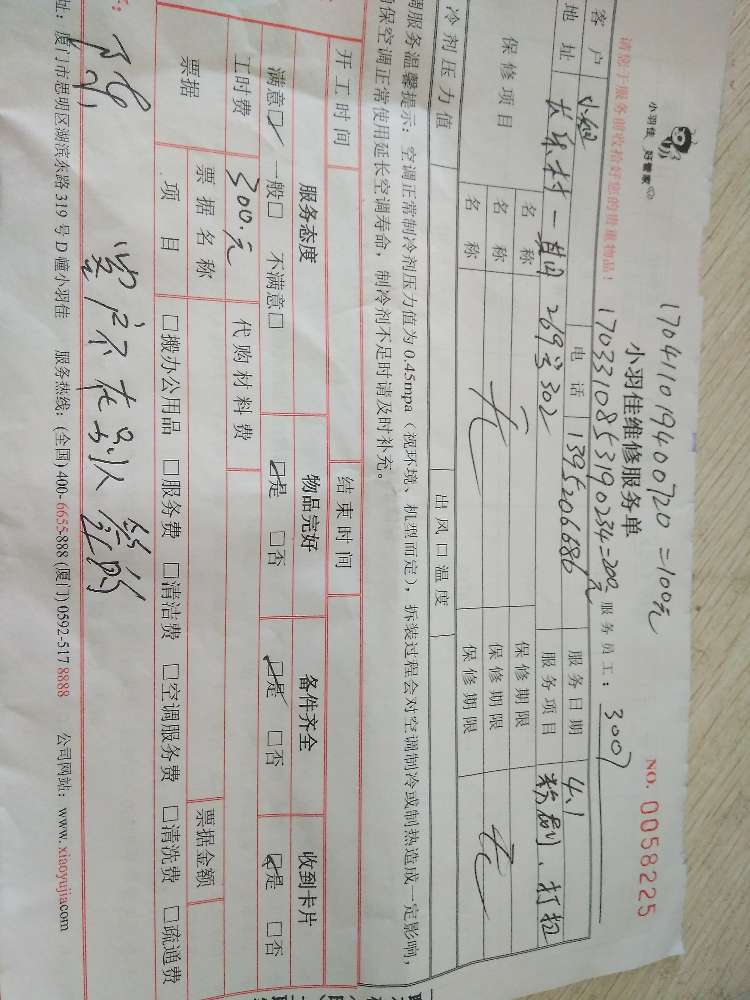 小羽佳 好管家
17041101940072​0=100元
小羽佳维修服务单
NO. 0058225
1703310853190234=200元
服务员工: 3007
请您于服务前收拾好您的贵重物品!
客户 电话 13952066​86 服务日期 4.1
地址 长乐村一期269号302 服务项目 粉刷、打扫
保修项目 名称 无 保修期限 无
名称 保修期限
名称 保修期限
冷剂压力值 出风口温度
调服务温馨提示: 空调正常制冷剂压力值为0.45mpa (视环境、机型而定), 拆装过程会对空调制冷或制热造成一定影响,
保空调正常使用延长空调寿命, 制冷剂不足时请及时补充。
开工时间 结束时间
服务态度 物品完好 备件齐全 收到卡片
满意☑ 一般□ 不满意□ ☑是 □否 ☑是 □否 ☑是 □否
工时费 300.元 代购材料费
票据 票据名称 票据金额
项目 □搬办公用品 □服务费 □清洁费 □空调服务费 □清洗费 □疏通费
客户不在别人签的
址: 厦门市思明区湖滨东路319号D幢小羽佳 服务热线: (全国)400-6655-888 (厦门)0592-517 8888 公司网站: www.xiaoyujia.com